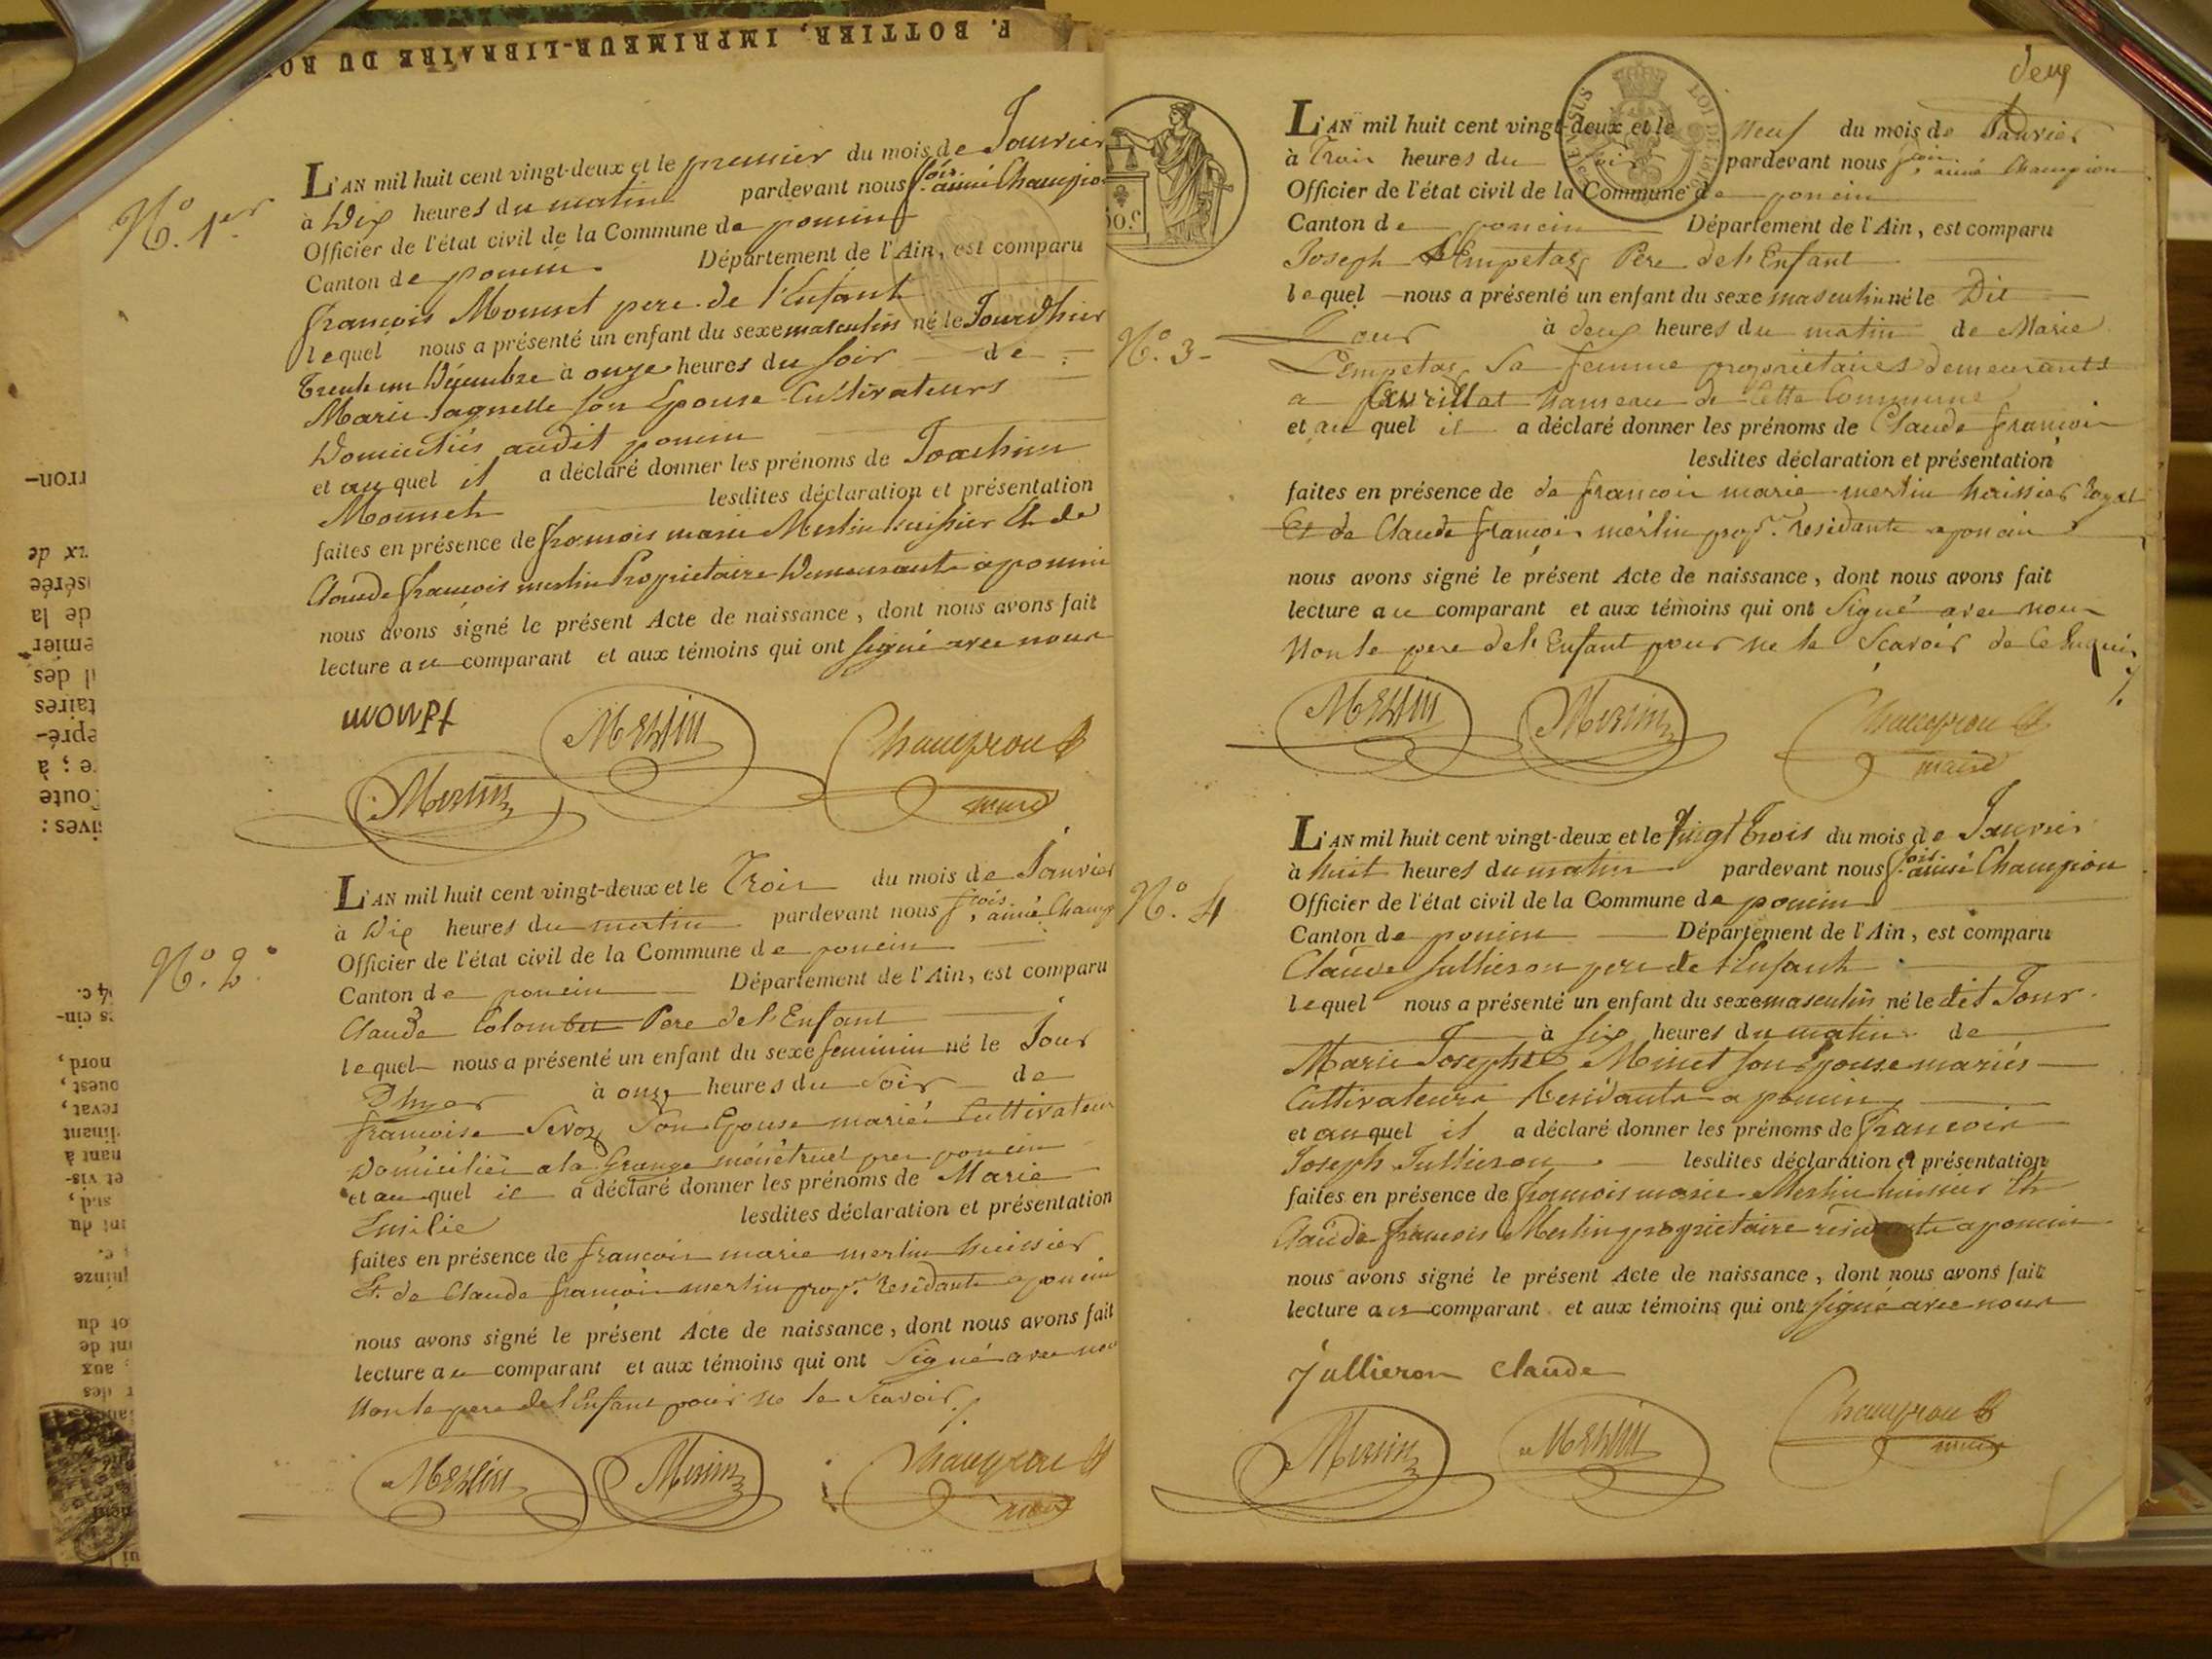 F. BOTTIER, IMPRIMEUR-LIBRAIRE DU RO
N.o 1.er
L'AN mil huit cent vingt-deux et le premier du mois de Janvier
à Dix heures du matin pardevant nous f.ois aimé Champion
Officier de l'état civil de la Commune de poncin
Canton de poncin Département de l'Ain, est comparu
françois Monnet pere de l'Enfant
lequel nous a présenté un enfant du sexe masculin né le Jourdhier
trente un Décembre à onze heures du soir de
Marie Jagnelle son Epouse Cultivateurs
Domiciliés audit poncin
et au quel il a déclaré donner les prénoms de Joachim
Monnet lesdites déclaration et présentation
faites en présence de françois marie Merlin huissier Et de
Claude françois merlin Proprietaire Demeurants a poncin
nous avons signé le présent Acte de naissance, dont nous avons fait
lecture au comparant et aux témoins qui ont signé avec nous
Merlin
Champion
Merlin
maire
N.o 2.
L'AN mil huit cent vingt-deux et le Trois du mois de Janvier
à Dix heures du matin pardevant nous f.ois aimé Champ
Officier de l'état civil de la Commune de poncin
Canton de poncin Département de l'Ain, est comparu
Claude Colombet Pere de l'Enfant
lequel nous a présenté un enfant du sexe feminin né le Jour
D'hyer à onze heures du Soir de
françoise Sevoz Son Epouse mariés Cultivateurs
Domiciliés a la Grange près poncin
et au quel il a déclaré donner les prénoms de Marie
Emilie lesdites déclaration et présentation
faites en présence de françois marie merlin huissier
Et de Claude françois merlin prop.re Residants a poncin
nous avons signé le présent Acte de naissance, dont nous avons fait
lecture au comparant et aux témoins qui ont Signé avec nous
Non le pere de l'Enfant pour ne le Scavoir
Merlin Merlin Champion
maire
deux
L'AN mil huit cent vingt-deux et le neuf du mois de Janvier
à Trois heures du Soir pardevant nous f.ois aimé Champion
Officier de l'état civil de la Commune de poncin
Canton de poncin Département de l'Ain, est comparu
Joseph Pere de l'Enfant
lequel nous a présenté un enfant du sexe masculin né le Dit
N.o 3
Jour à deux heures du matin de Marie
Lempetaz Sa femme proprietaires demeurants
a Avrillat hameau de Cette Commune
et au quel il a déclaré donner les prénoms de Claude françois
lesdites déclaration et présentation
faites en présence de de françois marie merlin huissier Royal
Et de Claude françois merlin prop.re residants a poncin
nous avons signé le présent Acte de naissance, dont nous avons fait
lecture au comparant et aux témoins qui ont Signé avec nous
Non le pere de l'Enfant pour ne le Scavoir de Ce Enquis
Merlin Merlin Champion
maire
N.o 4
L'AN mil huit cent vingt-deux et le vingt trois du mois de Janvier
à huit heures du matin pardevant nous f.ois aimé Champion
Officier de l'état civil de la Commune de poncin
Canton de poncin Département de l'Ain, est comparu
Claude Jullieron pere de l'Enfant
lequel nous a présenté un enfant du sexe masculin né le dit Jour
à six heures du matin de
Marie Josephte Moinet son Epouse mariés
Cultivateurs Residants a poncin
et au quel il a déclaré donner les prénoms de françois
Joseph Jullieron lesdites déclaration et présentation
faites en présence de françois marie Merlin huissier Et
Claude françois Merlin proprietaire résidants a poncin
nous avons signé le présent Acte de naissance, dont nous avons fait
lecture au comparant et aux témoins qui ont signé avec nous
Jullieron Claude
Merlin Merlin Champion
maire